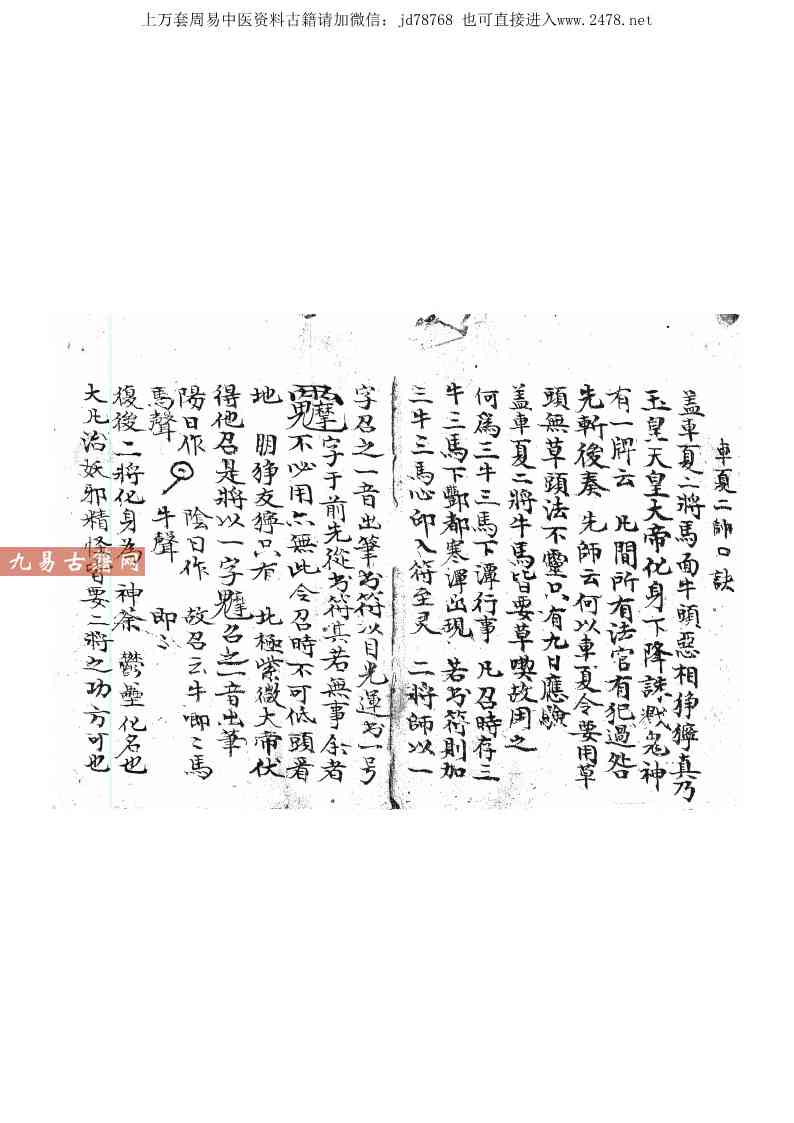 上万套周易中医资料古籍请加微信：jd78768 也可直接进入www.2478.net
車夏二帥口訣
盖車夏二將馬面牛頭惡相狰獰真乃
玉皇天皇大帝化身下降誅戮鬼神
有一牌云 凡間所有法官有犯過咎
先斬後奏 先師云何以車夏令要用草
頭無草頭法不靈只有九日應驗
盖車夏二將牛馬皆要草喫故用之
何爲三牛三馬下潭行事 凡召時存三
牛三馬下酆都寒潭出現 若书符則加
三牛三馬心印入符至灵 二將師以一
字召之一音出筆书符以目光運书一号
字于前先從书符其若無事余者
不必用亦無此令召時不可低頭看
地 明狰友獰只有 北極紫微大帝伏
得他召是將以一字 召之一音出筆
陽日作 陰日作 故召云牛唧〻馬
馬聲 牛聲 即〻
復後二將化身為 神荼 鬱壘化名也
大凡治妖邪精怪皆要二將之功方可也
九易古籍网